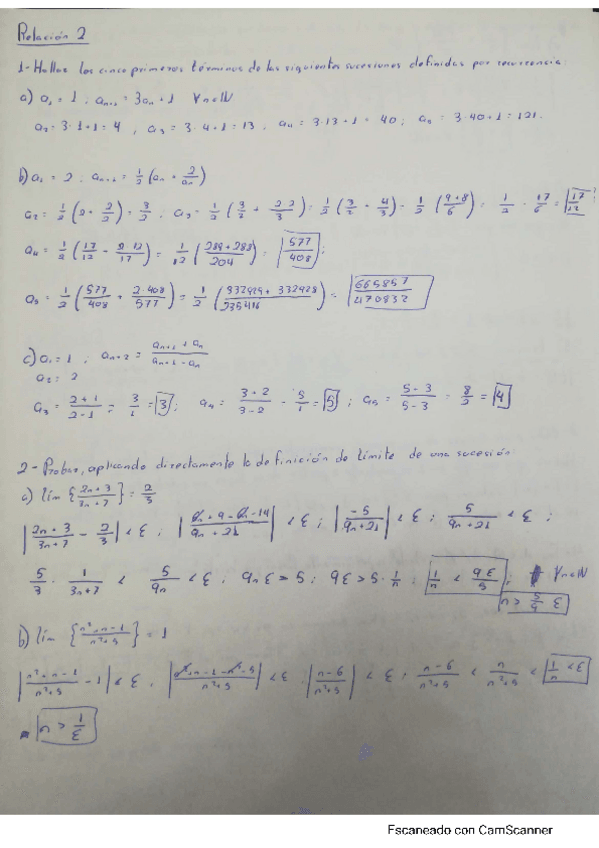 Relación 2
1- Hallar los cinco primeros términos de las siguientes sucesiones definidas por recurrencia:
a) a₁ = 1 ; aₙ₊₁ = 3aₙ + 1 ∀n∈ℕ
a₂ = 3·1+1 = 4 , a₃ = 3·4+1 = 13 , a₄ = 3·13+1 = 40 ; a₅ = 3·40+1 = 121.
b) a₁ = 2 . aₙ₊₁ = 1/2 (aₙ + 2/aₙ)
a₂ = 1/2 (2 + 2/2) = 3/2 . a₃ = 1/2 (3/2 + 2·2/3) = 1/2 (3/2 + 4/3) = 1/2 (9+8/6) = 1/2 · 17/6 = 17/12 ;
a₄ = 1/2 (17/12 + 2·12/17) = 1/2 (289+288/204) = 577/408 ;
a₅ = 1/2 (577/408 + 2·408/577) = 1/2 (332929 + 332928/235416) = 665857/470832
c) a₁ = 1 ; aₙ₊₂ = aₙ₊₁ + aₙ/aₙ₊₁ - aₙ
a₂ = 2
a₃ = 2+1/2-1 = 3/1 = 3 ; a₄ = 3+2/3-2 = 5/1 = 5 ; a₅ = 5-3/5-3 = 8/2 = 4
2- Probar, aplicando directamente la definición de límite de una sucesión:
a) lím {2n+3/3n+7} = 2/3
|2n+3/3n+7 - 2/3| < ε ; |6n+9-6n-14/9n+21| < ε ; |-5/9n+21| < ε ; 5/9n+21 < ε ;
5/3 · 1/3n+7 < 5/9n < ε ; 9nε > 5 ; 9ε > 5·1/n ; 1/n < 9ε/5 ; ∀n∈ℕ
n > 5/9 ε
b) lím {n²+n-1/n²+5} = 1
|n²+n-1/n²+5 - 1| < ε . |n²+n-1-n²-5/n²+5| < ε . |n-6/n²+5| < ε ; n-6/n²+5 < n/n²+5 < 1/n < ε
n > 1/ε
Escaneado con CamScanner